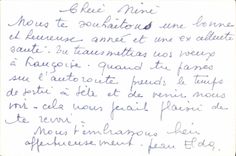 Chère Niné
Nous te souhaitons une bonne
et heureuse année et une excellente
santé. Tu transmettras nos vœux
à Françoise. quand tu passes
sur l'autoroute prends le temps
de sortir à Sète et de venir nous
voir. cela nous ferait plaisir de
te revoir.
Nous t'embrassons bien
affectueusement. Jean Elda.